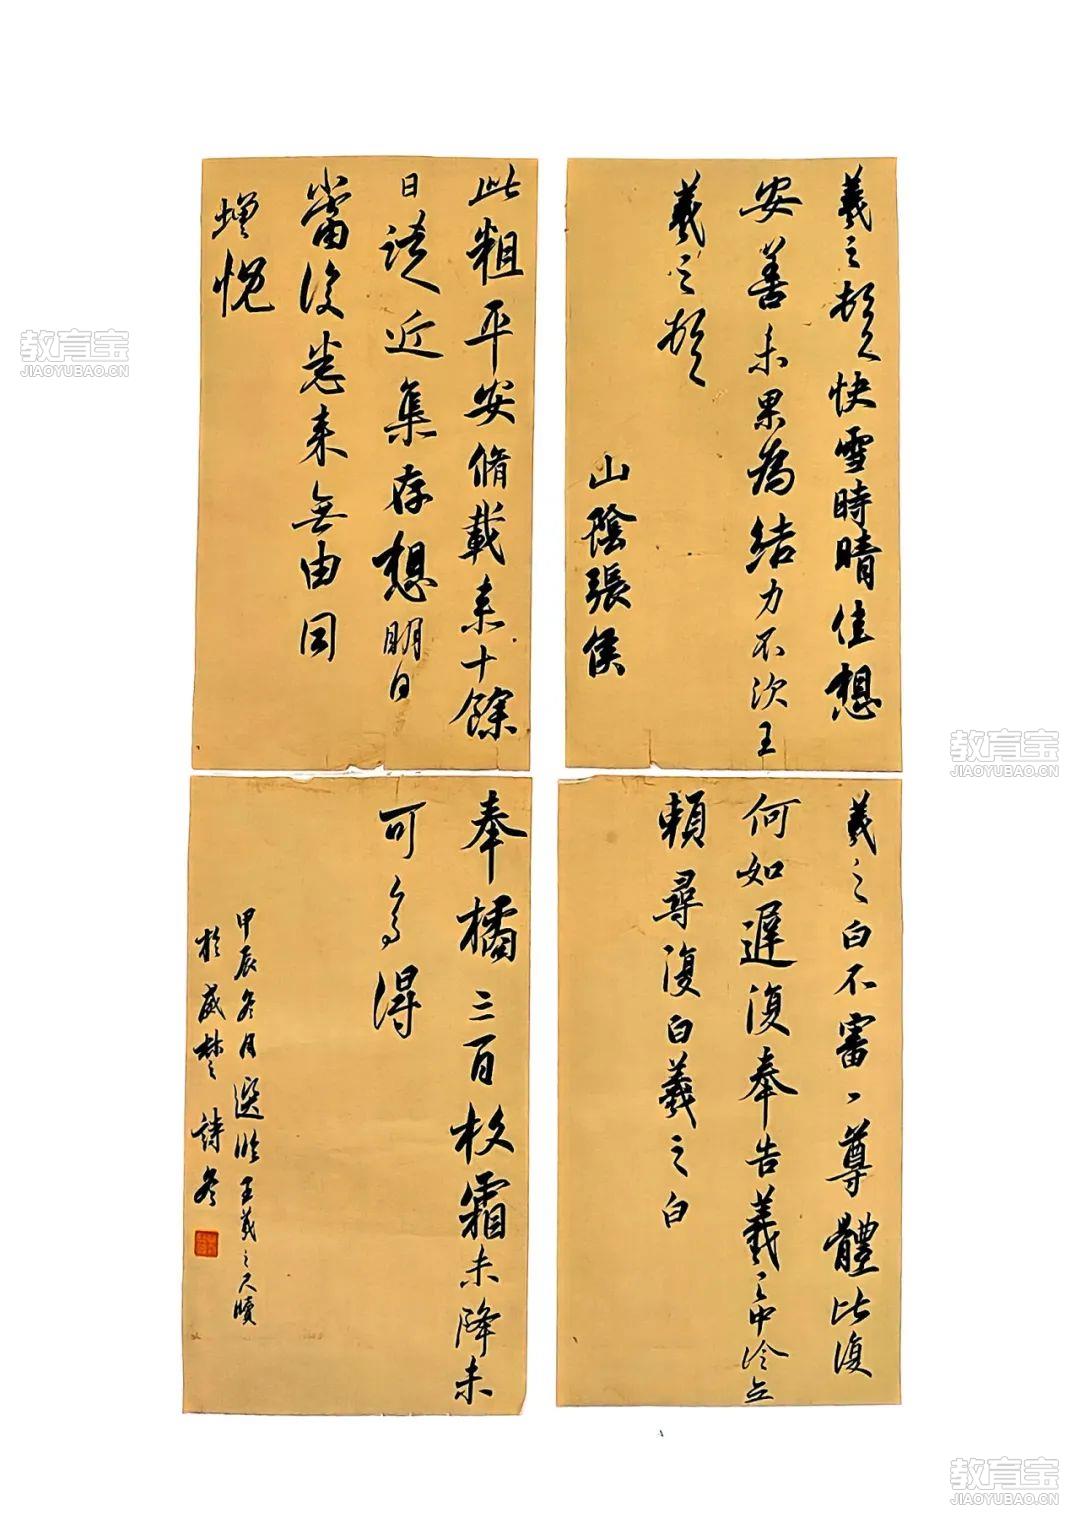 羲之頓首快雪時晴佳想
安善未果為結力不次王
羲之頓首
山陰張侯
此粗平安脩載来十餘
日諸近集存想明日
當復悉来無由同
增慨
羲之白不審、尊體比復
何如遲復奉告羲之中冷无
賴尋復白羲之白
奉橘三百枚霜未降未
可多得
甲辰冬月選臨王羲之尺牘
於
教育宝
JIAOYUBAO.CN
教育宝
JIAOYUBAO.CN
教育宝
JIAOYUBAO.CN